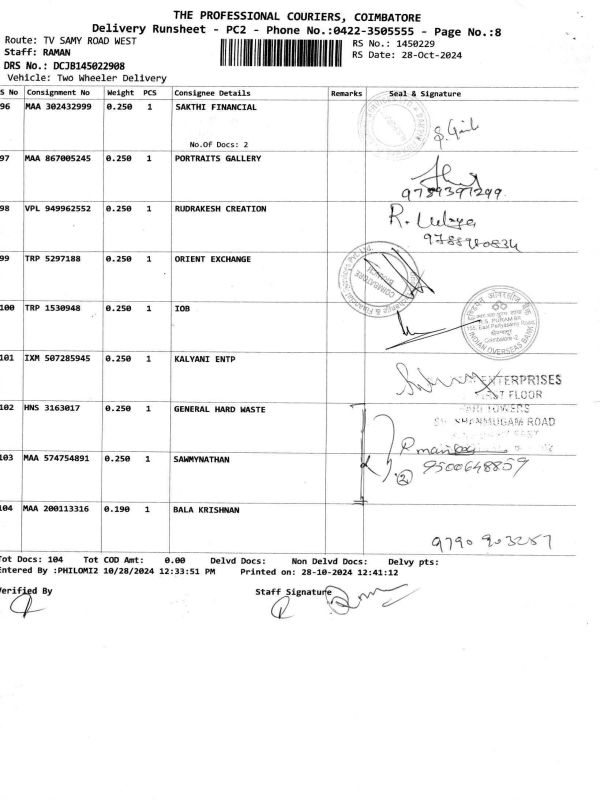 THE PROFESSIONAL COURIERS, COIMBATORE
Delivery Runsheet - PC2 - Phone No.:0422-3505555 - Page No.:8
Route: TV SAMY ROAD WEST
RS No.: 1450229
Staff: RAMAN
RS Date: 28-Oct-2024
DRS No.: DCJB145022908
Vehicle: Two Wheeler Delivery
S No Consignment No Weight PCS Consignee Details Remarks Seal & Signature
96 MAA 302432999 0.250 1 SAKTHI FINANCIAL
No.Of Docs: 2
97 MAA 867005245 0.250 1 PORTRAITS GALLERY
9789397299
98 VPL 949962552 0.250 1 RUDRAKESH CREATION
99 TRP 5297188 0.250 1 ORIENT EXCHANGE
COIMBATORE
100 TRP 1530948 1 0.250 IOB
R.S. PURAM BR
INDIAN OVERSEAS BANK
Coimbatore-2
101 IXM 507285945 0.250 1 KALYANI ENTP
ENTERPRISES
FIRST FLOOR
102 HNS 3163017 0.250 1 GENERAL HARD WASTE
TOWERS
SHANMUGAM ROAD
103 MAA 574754891 0.250 1 SAWMYNATHAN
9500648859
104 MAA 200113316 0.190 1 BALA KRISHNAN
9790 203257
Tot Docs: 104 Tot COD Amt: 0.00 Delvd Docs: Non Delvd Docs: Delvy pts:
Entered By :PHILOMI2 10/28/2024 12:33:51 PM Printed on: 28-10-2024 12:41:12
Verified By Staff Signature